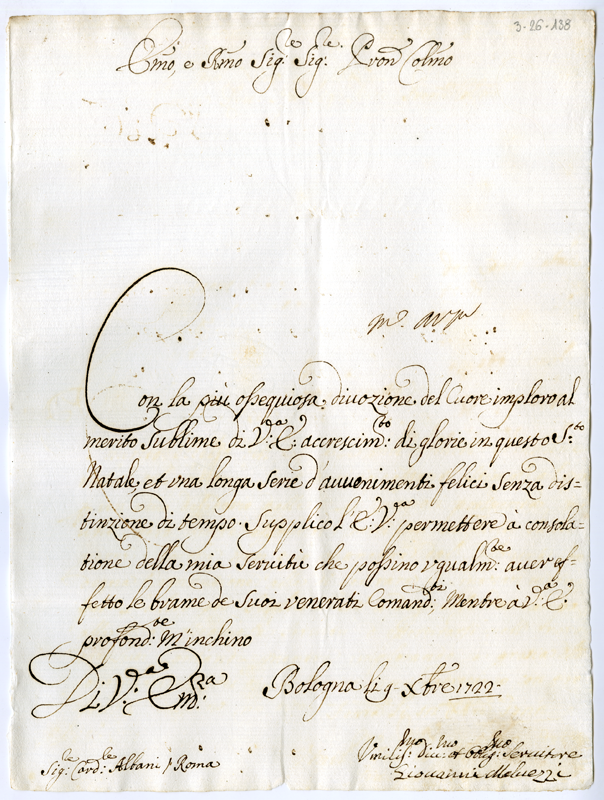 3-26-138
Emo, e Rmo Sig.re Sig.re Pron Colmo
Con la più ossequiosa divozione del Cuore imploro al
merito sublime di V.ra E. accrescim.to di glorie in questo S.to
Natale, et vna longa serie d'avvenimenti felici senza dis-
tinzione di tempo. Supplico l'E. V.ra permettere à consola-
tione della mia seruitù che possino vgualm.te aver ef-
fetto le brame de suoi venerati Comand.ti, Mentre à V.ra E.
profond.te M'inchino
Di V.ra Em.za Bologna li 9 Xbre 1722
Sig.re Card.le Albani / Roma
Vmilis.mo Diu.mo et Obblig.mo Servitore
Giovanni Melvezzi